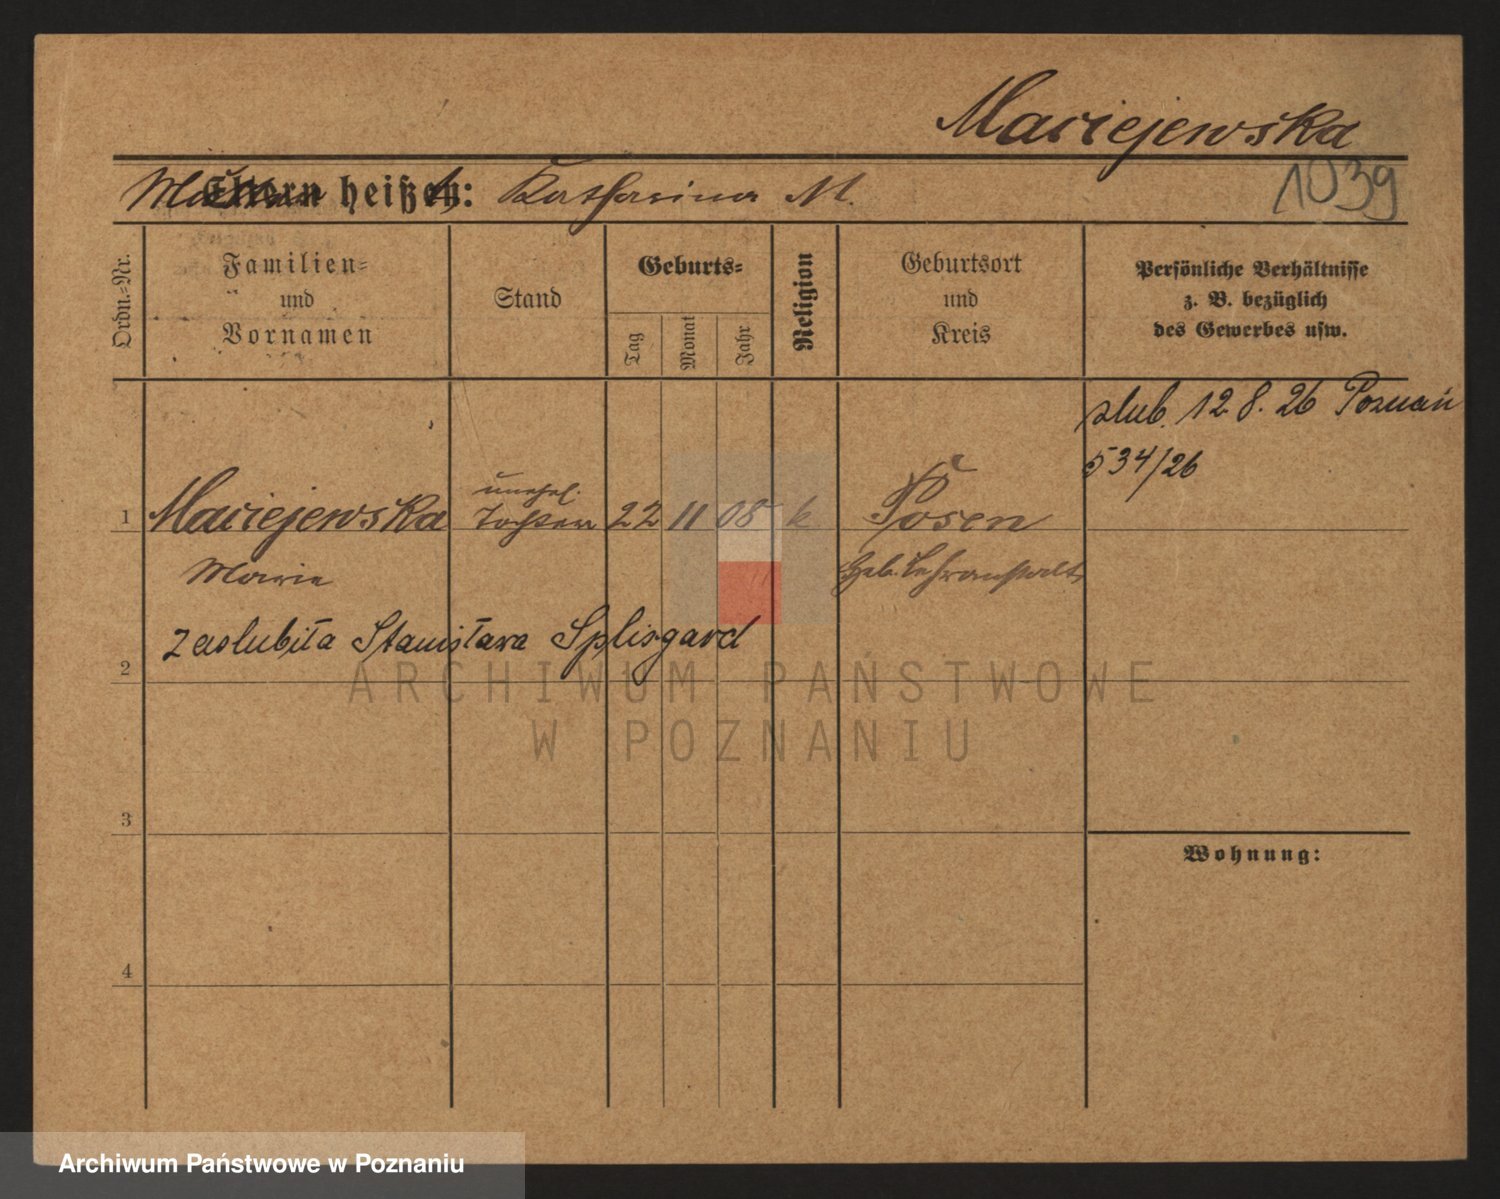 Maciejewska
Mutter heißt: Katharina M. 1039
Ordn.-Nr.
Familien-
und
Vornamen
Stand
Geburts-
Tag
Monat
Jahr
Religion
Geburtsort
und
Kreis
Persönliche Verhältnisse
z. B. bezüglich
des Gewerbes usw.
slub. 12.8.26 Poznań
534/26
unehel.
1 Maciejewska Tochter 22 11 08 k Posen
Marie Heb. Lehranstalt
zaślubiła Stanisława Splisgard
2
ARCHIWUM PAŃSTWOWE
W POZNANIU
3
Wohnung:
4
Archiwum Państwowe w Poznaniu